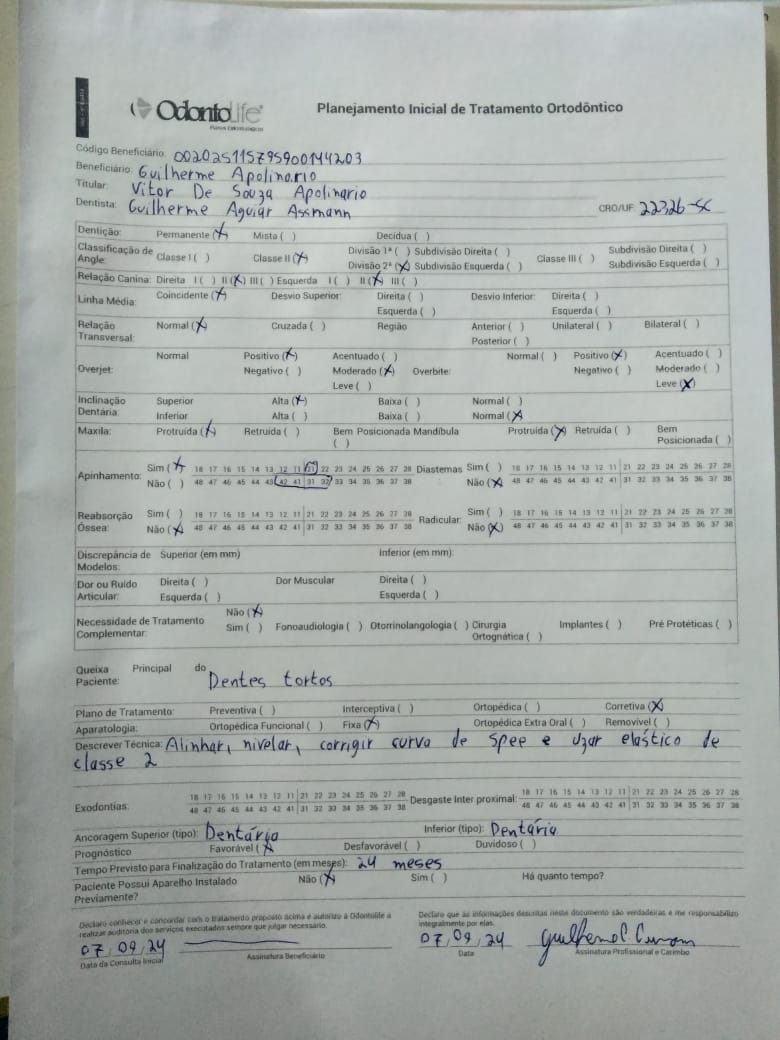 OdontoLife
Planos Odontológicos
Planejamento Inicial de Tratamento Ortodôntico
Código Beneficiário: 00202511579590014420З
Beneficiário: Guilherme Apolinario
Titular: Vitor De Souza Apolinario
Dentista: Guilherme Aguiar Assmann CRO/UF: 22326-SC
Dentição: Permanente (X) Mista ( ) Decídua ( )
Classificação de Angle: Classe I ( ) Classe II (X) Divisão 1ª ( ) Subdivisão Direita ( ) Classe III ( ) Subdivisão Direita ( )
Divisão 2ª (X) Subdivisão Esquerda ( ) Subdivisão Esquerda ( )
Relação Canina: Direita I ( ) II (X) III ( ) Esquerda I ( ) II (X) III ( )
Linha Média: Coincidente (X) Desvio Superior: Direita ( ) Desvio Inferior: Direita ( )
Esquerda ( ) Esquerda ( )
Relação Transversal: Normal (X) Cruzada ( ) Região Anterior ( ) Unilateral ( ) Bilateral ( )
Posterior ( )
Overjet: Normal Positivo (X) Acentuado ( ) Overbite: Normal ( ) Positivo (X) Acentuado ( )
Negativo ( ) Moderado (X) Negativo ( ) Moderado ( )
Leve ( ) Leve (X)
Inclinação Dentária: Superior Alta (X) Baixa ( ) Normal ( )
Inferior Alta ( ) Baixa ( ) Normal (X)
Maxila: Protruída (X) Retruída ( ) Bem Posicionada ( ) Mandíbula Protruída (X) Retruída ( ) Bem Posicionada ( )
Apinhamento: Sim (X) 18 17 16 15 14 13 12 11 21 22 23 24 25 26 27 28 Diastemas Sim ( ) 18 17 16 15 14 13 12 11 21 22 23 24 25 26 27 28
Não ( ) 48 47 46 45 44 43 42 41 31 32 33 34 35 36 37 38 Não (X) 48 47 46 45 44 43 42 41 31 32 33 34 35 36 37 38
Reabsorção Óssea: Sim ( ) 18 17 16 15 14 13 12 11 21 22 23 24 25 26 27 28 Radicular: Sim ( ) 18 17 16 15 14 13 12 11 21 22 23 24 25 26 27 28
Não (X) 48 47 46 45 44 43 42 41 31 32 33 34 35 36 37 38 Não (X) 48 47 46 45 44 43 42 41 31 32 33 34 35 36 37 38
Discrepância de Modelos: Superior (em mm) Inferior (em mm):
Dor ou Ruído Articular: Direita ( ) Dor Muscular Direita ( )
Esquerda ( ) Esquerda ( )
Necessidade de Tratamento Complementar: Não (X)
Sim ( ) Fonoaudiologia ( ) Otorrinolangologia ( ) Cirurgia Ortognática ( ) Implantes ( ) Pré Protéticas ( )
Queixa Principal do Paciente: Dentes tortos
Plano de Tratamento: Preventiva ( ) Interceptiva ( ) Ortopédica ( ) Corretiva (X)
Aparatologia: Ortopédica Funcional ( ) Fixa (X) Ortopédica Extra Oral ( ) Removível ( )
Descrever Técnica: Alinhar, nivelar, corrigir curva de spee e uzar elástico de
classe 2
Exodontias: 18 17 16 15 14 13 12 11 21 22 23 24 25 26 27 28 Desgaste Inter proximal: 18 17 16 15 14 13 12 11 21 22 23 24 25 26 27 28
48 47 46 45 44 43 42 41 31 32 33 34 35 36 37 38 48 47 46 45 44 43 42 41 31 32 33 34 35 36 37 38
Ancoragem Superior (tipo): Dentária Inferior (tipo): Dentária
Prognóstico Favorável (X) Desfavorável ( ) Duvidoso ( )
Tempo Previsto para Finalização do Tratamento (em meses): 24 meses
Paciente Possui Aparelho Instalado Previamente? Não (X) Sim ( ) Há quanto tempo?
Declaro conhecer e concordar com o tratamento proposto acima e autorizo à Odontolife a
realizar auditoria dos serviços executados sempre que julgar necessário.
Declaro que as informações descritas neste documento são verdadeiras e me responsabilizo
integralmente por elas.
07,09,24 07,09,24
Data da Consulta Inicial Assinatura Beneficiário Data Assinatura Profissional e Carimbo